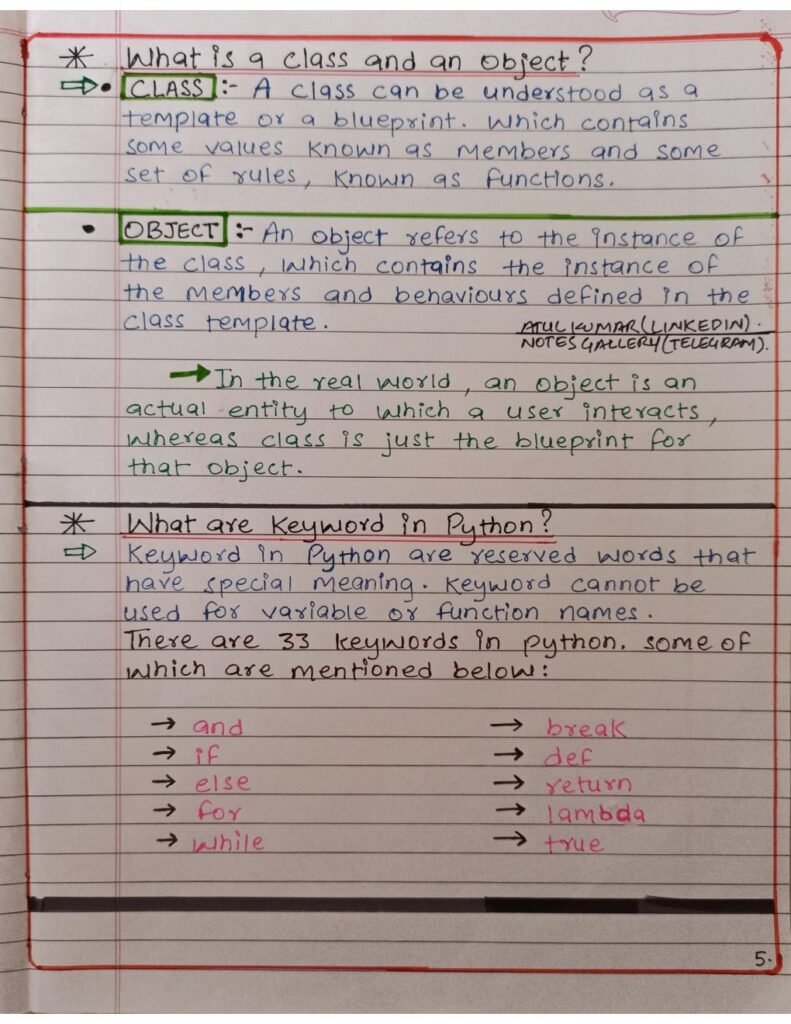 * What is a class and an object?
⇒ • CLASS :- A class can be understood as a
template or a blueprint. Which contains
some values known as members and some
set of rules, known as functions.
• OBJECT :- An object refers to the instance of
the class, which contains the instance of
the members and behaviours defined in the
class template.
ATUL KUMAR (LINKEDIN).
NOTES GALLERY (TELEGRAM).
→ In the real world, an object is an
actual entity to which a user interacts,
whereas class is just the blueprint for
that object.
* What are Keyword in Python?
⇒ Keyword in Python are reserved words that
have special meaning. Keyword cannot be
used for variable or function names.
There are 33 keywords in python. some of
which are mentioned below:
→ and → break
→ if → def
→ else → return
→ for → lambda
→ while → true
5.